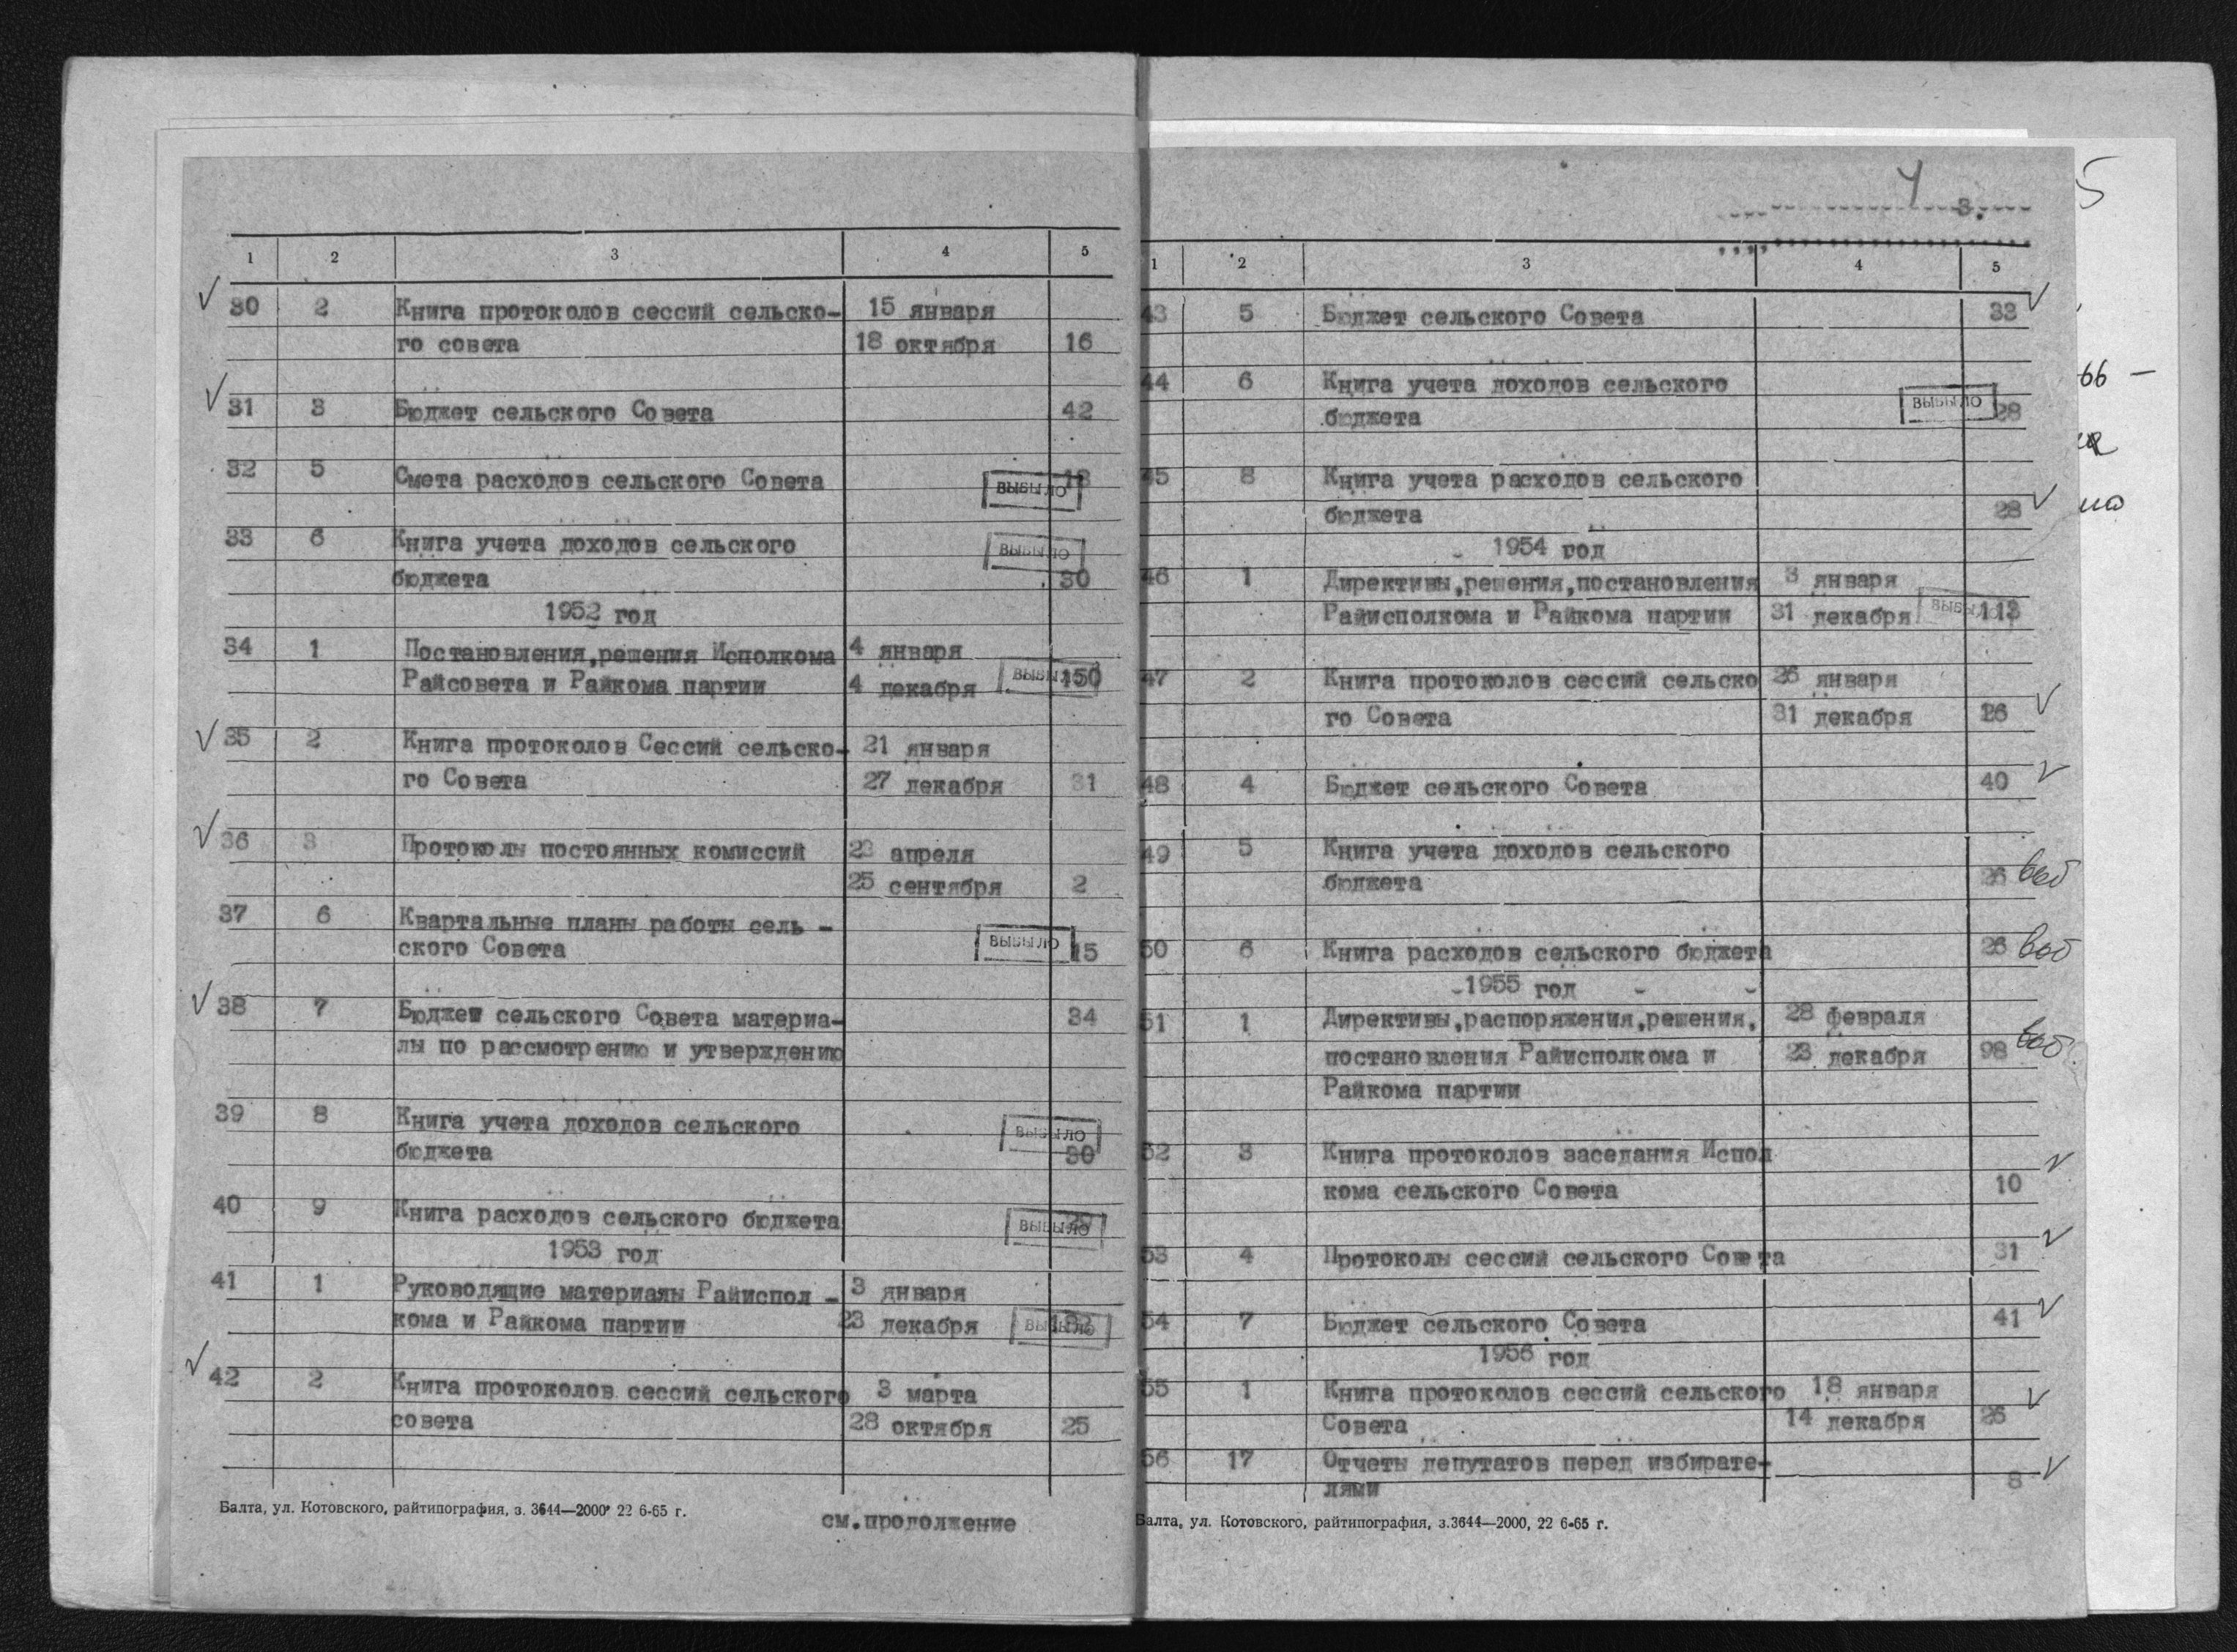 1 2 3 4 5
30 2 Книга протоколов сессий сельско- 15 января
го совета 18 октября 16
31 3 Бюджет сельского Совета 42
32 5 Смета расходов сельского Совета ВЫБЫЛО
33 6 Книга учета доходов сельского ВЫБЫЛО
бюджета 30
1952 год
34 1 Постановления,решения Исполкома 4 января
Райсовета и Райкома партии 4 декабря ВЫБЫЛО 150
35 2 Книга протоколов Сессий сельско- 21 января
го Совета 27 декабря 31
36 3 Протоколы постоянных комиссий 23 апреля
25 сентября 2
37 6 Квартальные планы работы сель -
ского Совета ВЫБЫЛО 15
38 7 Бюджет сельского Совета материа- 34
лы по рассмотрению и утверждению
39 8 Книга учета доходов сельского ВЫБЫЛО
бюджета 30
40 9 Книга расходов сельского бюджета ВЫБЫЛО
1953 год
41 1 Руководящие материалы Райиспол - 3 января
кома и Райкома партии 23 декабря ВЫБЫЛО
42 2 Книга протоколов сессий сельского 3 марта
совета 28 октября 25
Балта, ул. Котовского, райтипография, з. 3644—2000 22 6-65 г.
см.продолжение
4 5
3.
1 2 3 4 5
43 5 Бюджет сельского Совета 33
44 6 Книга учета доходов сельского
бюджета ВЫБЫЛО 28
45 8 Книга учета расходов сельского
бюджета 28
1954 год
46 1 Директивы,решения,постановления 3 января
Райисполкома и Райкома партии 31 декабря ВЫБЫЛО 113
47 2 Книга протоколов сессий сельско 26 января
го Совета 31 декабря 26
48 4 Бюджет сельского Совета 40
49 5 Книга учета доходов сельского
бюджета 26 выб
50 6 Книга расходов сельского бюджета 26 выб
-1955 год -
51 1 Директивы,распоряжения,решения, 28 февраля
постановления Райисполкома и 23 декабря 98 выб
Райкома партии
52 3 Книга протоколов заседания Испол
кома сельского Совета 10
53 4 Протоколы сессий сельского Совета 31
54 7 Бюджет сельского Совета 41
1956 год
55 1 Книга протоколов сессий сельского 18 января
Совета 14 декабря 26
56 17 Отчеты депутатов перед избирате-
лями 8
Балта, ул. Котовского, райтипография, з.3644—2000, 22 6-65 г.
66 —